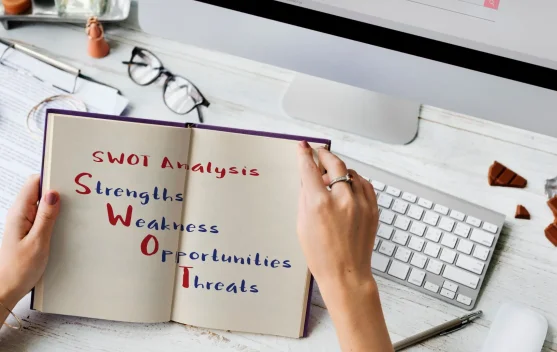 SWOT Analysis
Strengths
Weakness
Opportunities
Threats